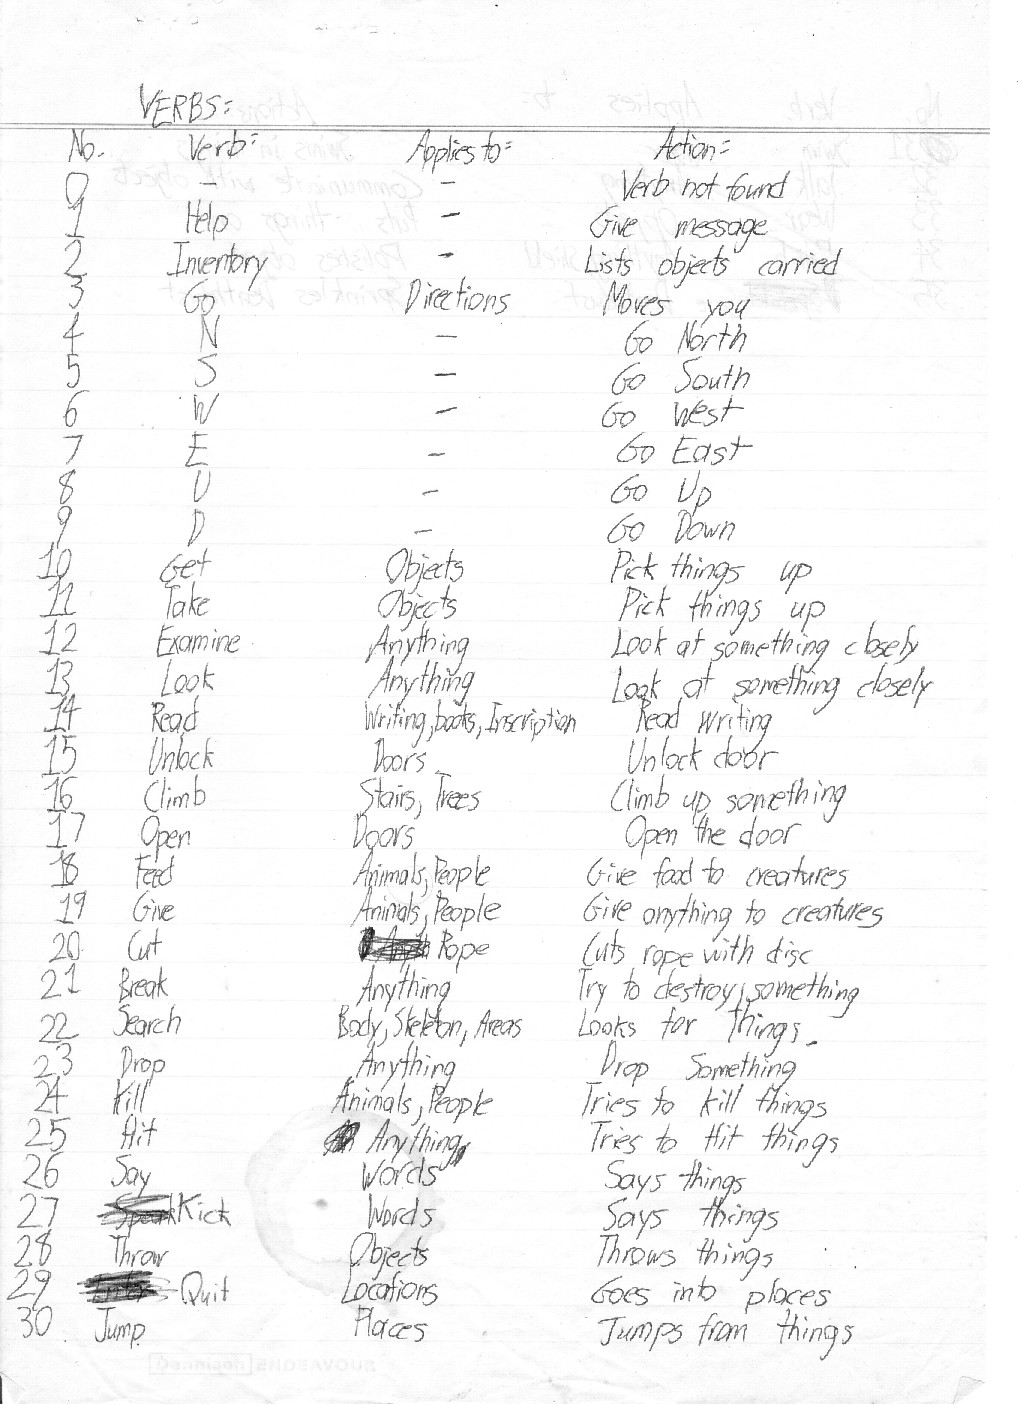 VERBS:
No. Verb: Applies to: Action:
0 - - Verb not found
1 Help - Give message
2 Inventory - Lists objects carried
3 Go Directions Moves you
4 N - Go North
5 S - Go South
6 W - Go West
7 E - Go East
8 U - Go Up
9 D - Go Down
10 Get Objects Pick things up
11 Take Objects Pick things up
12 Examine Anything Look at something closely
13 Look Anything Look at something closely
14 Read Writing, books, Inscription Read writing
15 Unlock Doors Unlock door
16 Climb Stairs, Trees Climb up something
17 Open Doors Open the door
18 Feed Animals, People Give food to creatures
19 Give Animals, People Give anything to creatures
20 Cut Rope Cuts rope with disc
21 Break Anything Try to destroy something
22 Search Body, Skeleton, Areas Looks for things
23 Drop Anything Drop Something
24 Kill Animals, People Tries to kill things
25 Hit Anything Tries to Hit things
26 Say Words Says things
27 Speak Kick Words Says things
28 Throw Objects Throws things
29 Enter Quit Locations Goes into places
30 Jump Places Jumps from things
Dennison ENDEAVOUR